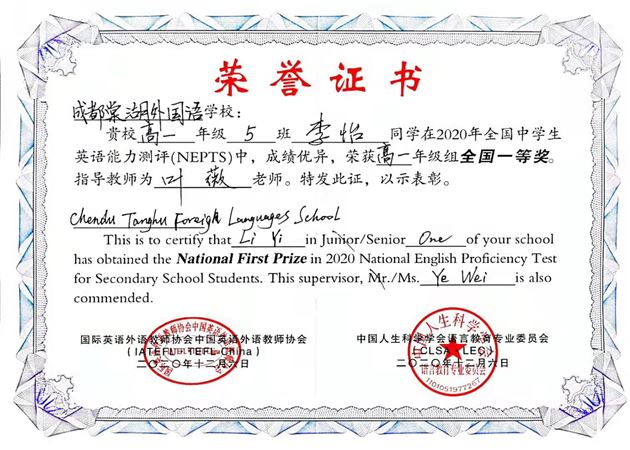 荣誉证书
成都棠湖外国语学校：
贵校高一年级5班李怡同学在2020年全国中学生
英语能力测评(NEPTS)中，成绩优异，荣获高一年级组全国一等奖。
指导教师为叶薇老师。特发此证，以示表彰。
Chendu Tanghu Foreign Languages School
This is to certify that Li Yi in Junior/Senior One of your school
has obtained the National First Prize in 2020 National English Proficiency Test
for Secondary School Students. This supervisor, Mr./Ms. Ye Wei is also
commended.
国际英语外语教师协会中国英语外语教师协会
(IATEFL TEFL China)
二〇二〇年十二月六日
中国人生科学学会语言教育专业委员会
(CLSA LEC)
二〇二〇年十二月六日
语言教育专业委员会
1101051977267